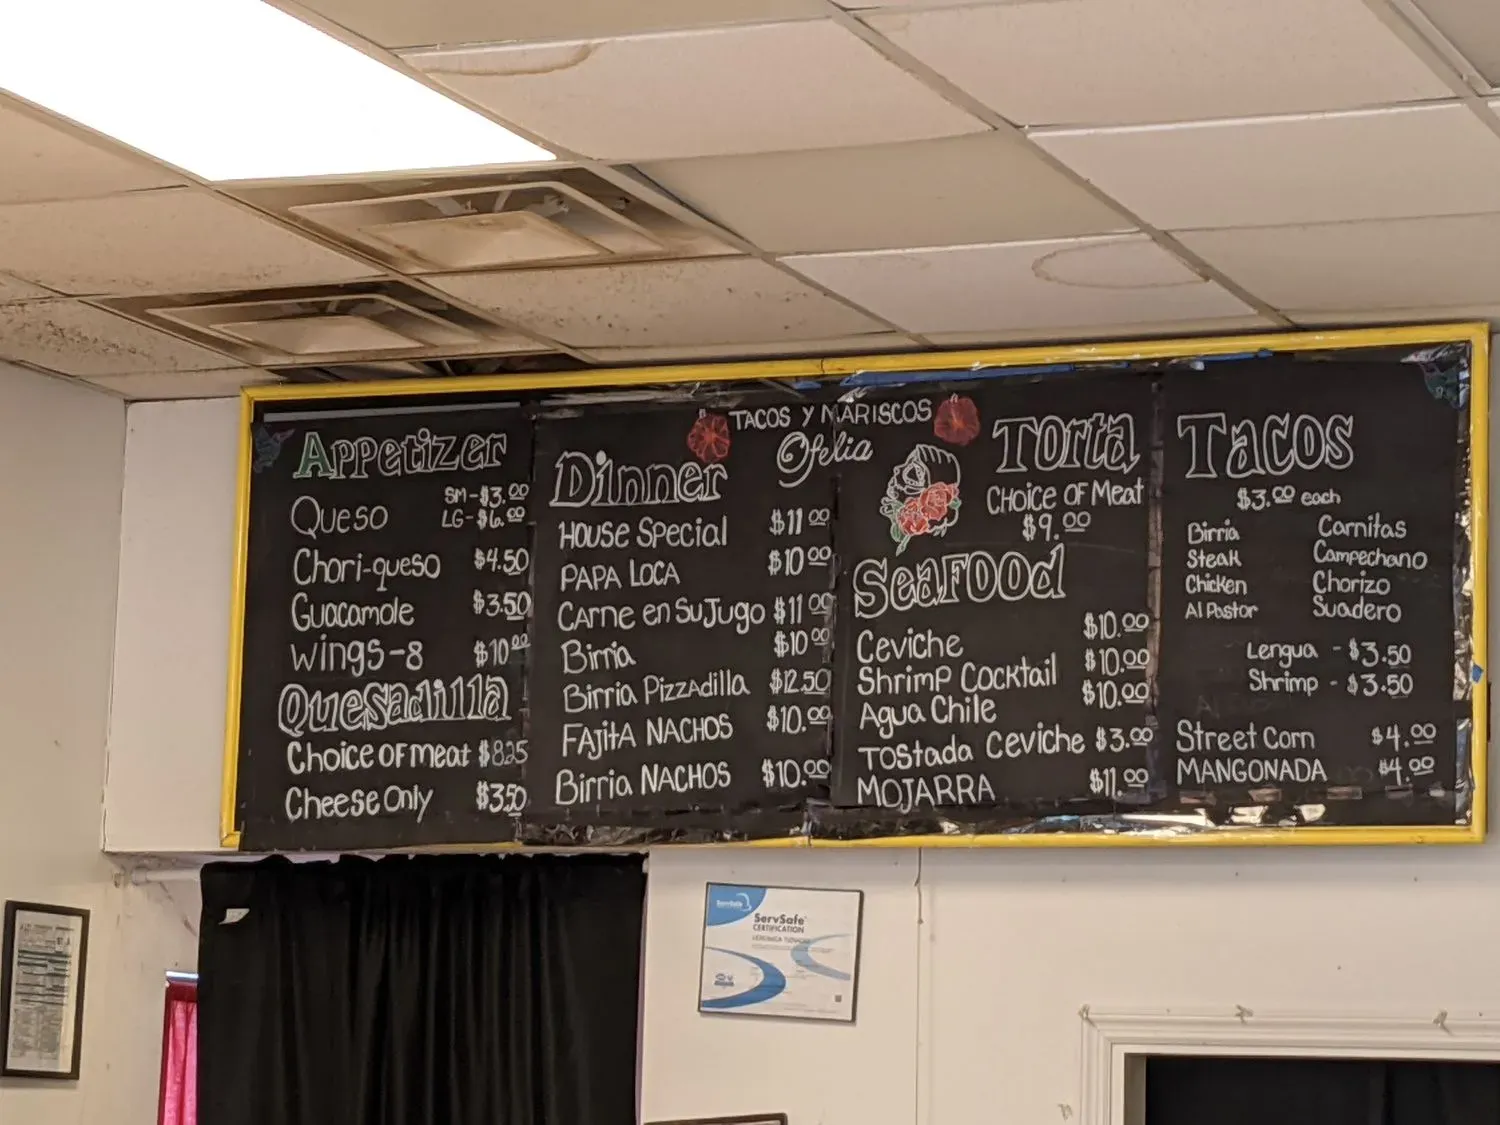 TACOS Y MARISCOS
Ofelia
APPetizer
Queso SM-$3.00
LG-$6.00
Chori-queso $4.50
Guacamole $3.50
Wings-8 $10.00
Quesadilla
Choice of meat $8.25
Cheese Only $3.50
Dinner
House Special $11.00
PAPA LOCA $10.00
Carne en Su Jugo $11.00
Birria $10.00
Birria Pizzadilla $12.50
FAjitA NACHOS $10.00
Birria NACHOS $10.00
Torta
CHOICE OF Meat
$9.00
SeaFOOd
Ceviche $10.00
Shrimp Cocktail $10.00
Agua Chile $10.00
Tostada Ceviche $3.00
MOJARRA $11.00
Tacos
$3.00 each
Birria Carnitas
Steak Campechano
Chicken Chorizo
Al Pastor Suadero
Lengua - $3.50
Shrimp - $3.50
Street Corn $4.00
MANGONADA $4.00
ServSafe
CERTIFICATION